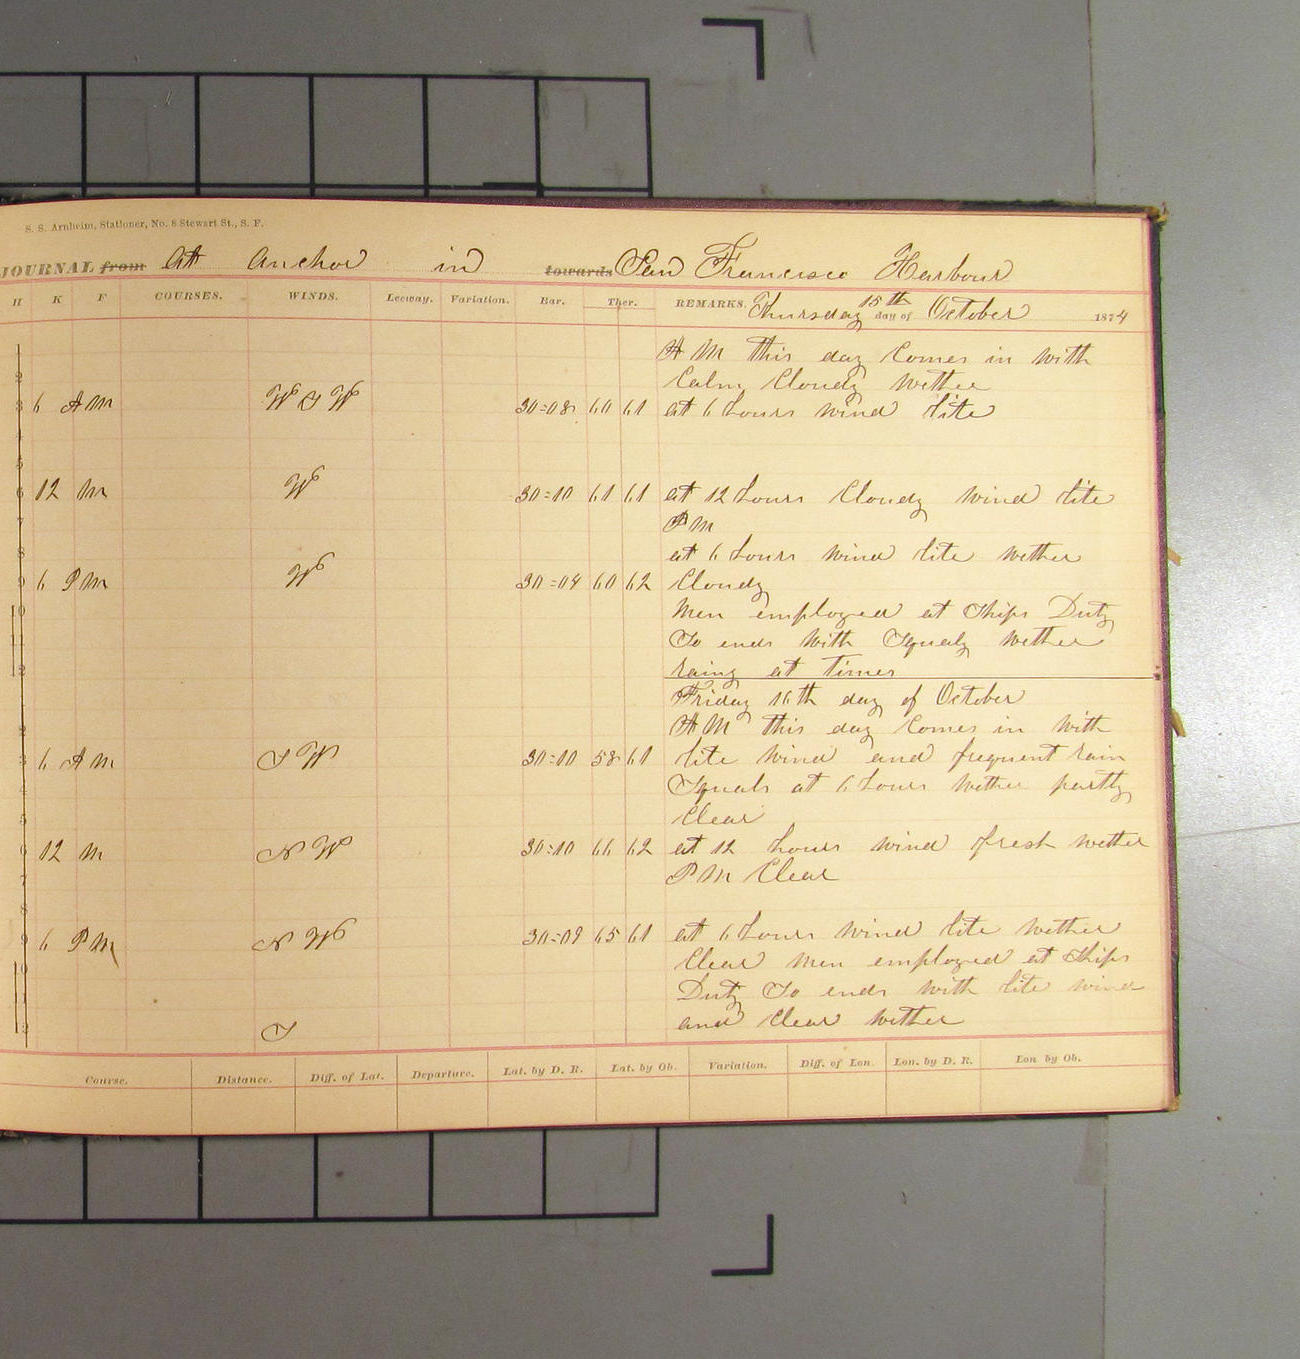 S. S. Arnheim, Stationer, No. 8 Stewart St., S. F.
JOURNAL from At Anchor in towards San Francisco Harbour
H K F COURSES. WINDS. Leeway. Variation. Bar. Ther. REMARKS. Thursday 15th day of October 1874
A M this day Comes in with
2 Calm Cloudy wether
3 6 A M W S W 30=08 60 61 at 6 hours wind lite
4
5
6 12 M W 30=10 61 61 at 12 hours Cloudy wind lite
7 P M
8 at 6 hours wind lite wether
9 6 P M W 30=04 60 62 Cloudy
10 Men employed at Ships Duty
11 So ends with Squaly wether
12 rainy at times
Friday 16th day of October
2 A M this day Comes in with
3 6 A M S W 30=00 58 61 lite wind and frequent rain
4 Squals at 6 hours wether partly
5 Clear
6 12 M N W 30=10 66 62 at 12 hours wind fresh wether
7 P M Clear
8
9 6 P M N W 30=09 65 61 at 6 hours wind lite wether
10 Clear Men employed at Ships
11 Duty So ends with lite wind
12 S and Clear wether
Course. Distance. Diff. of Lat. Departure. Lat. by D. R. Lat. by Ob. Variation. Diff. of Lon. Lon. by D. R. Lon by Ob.